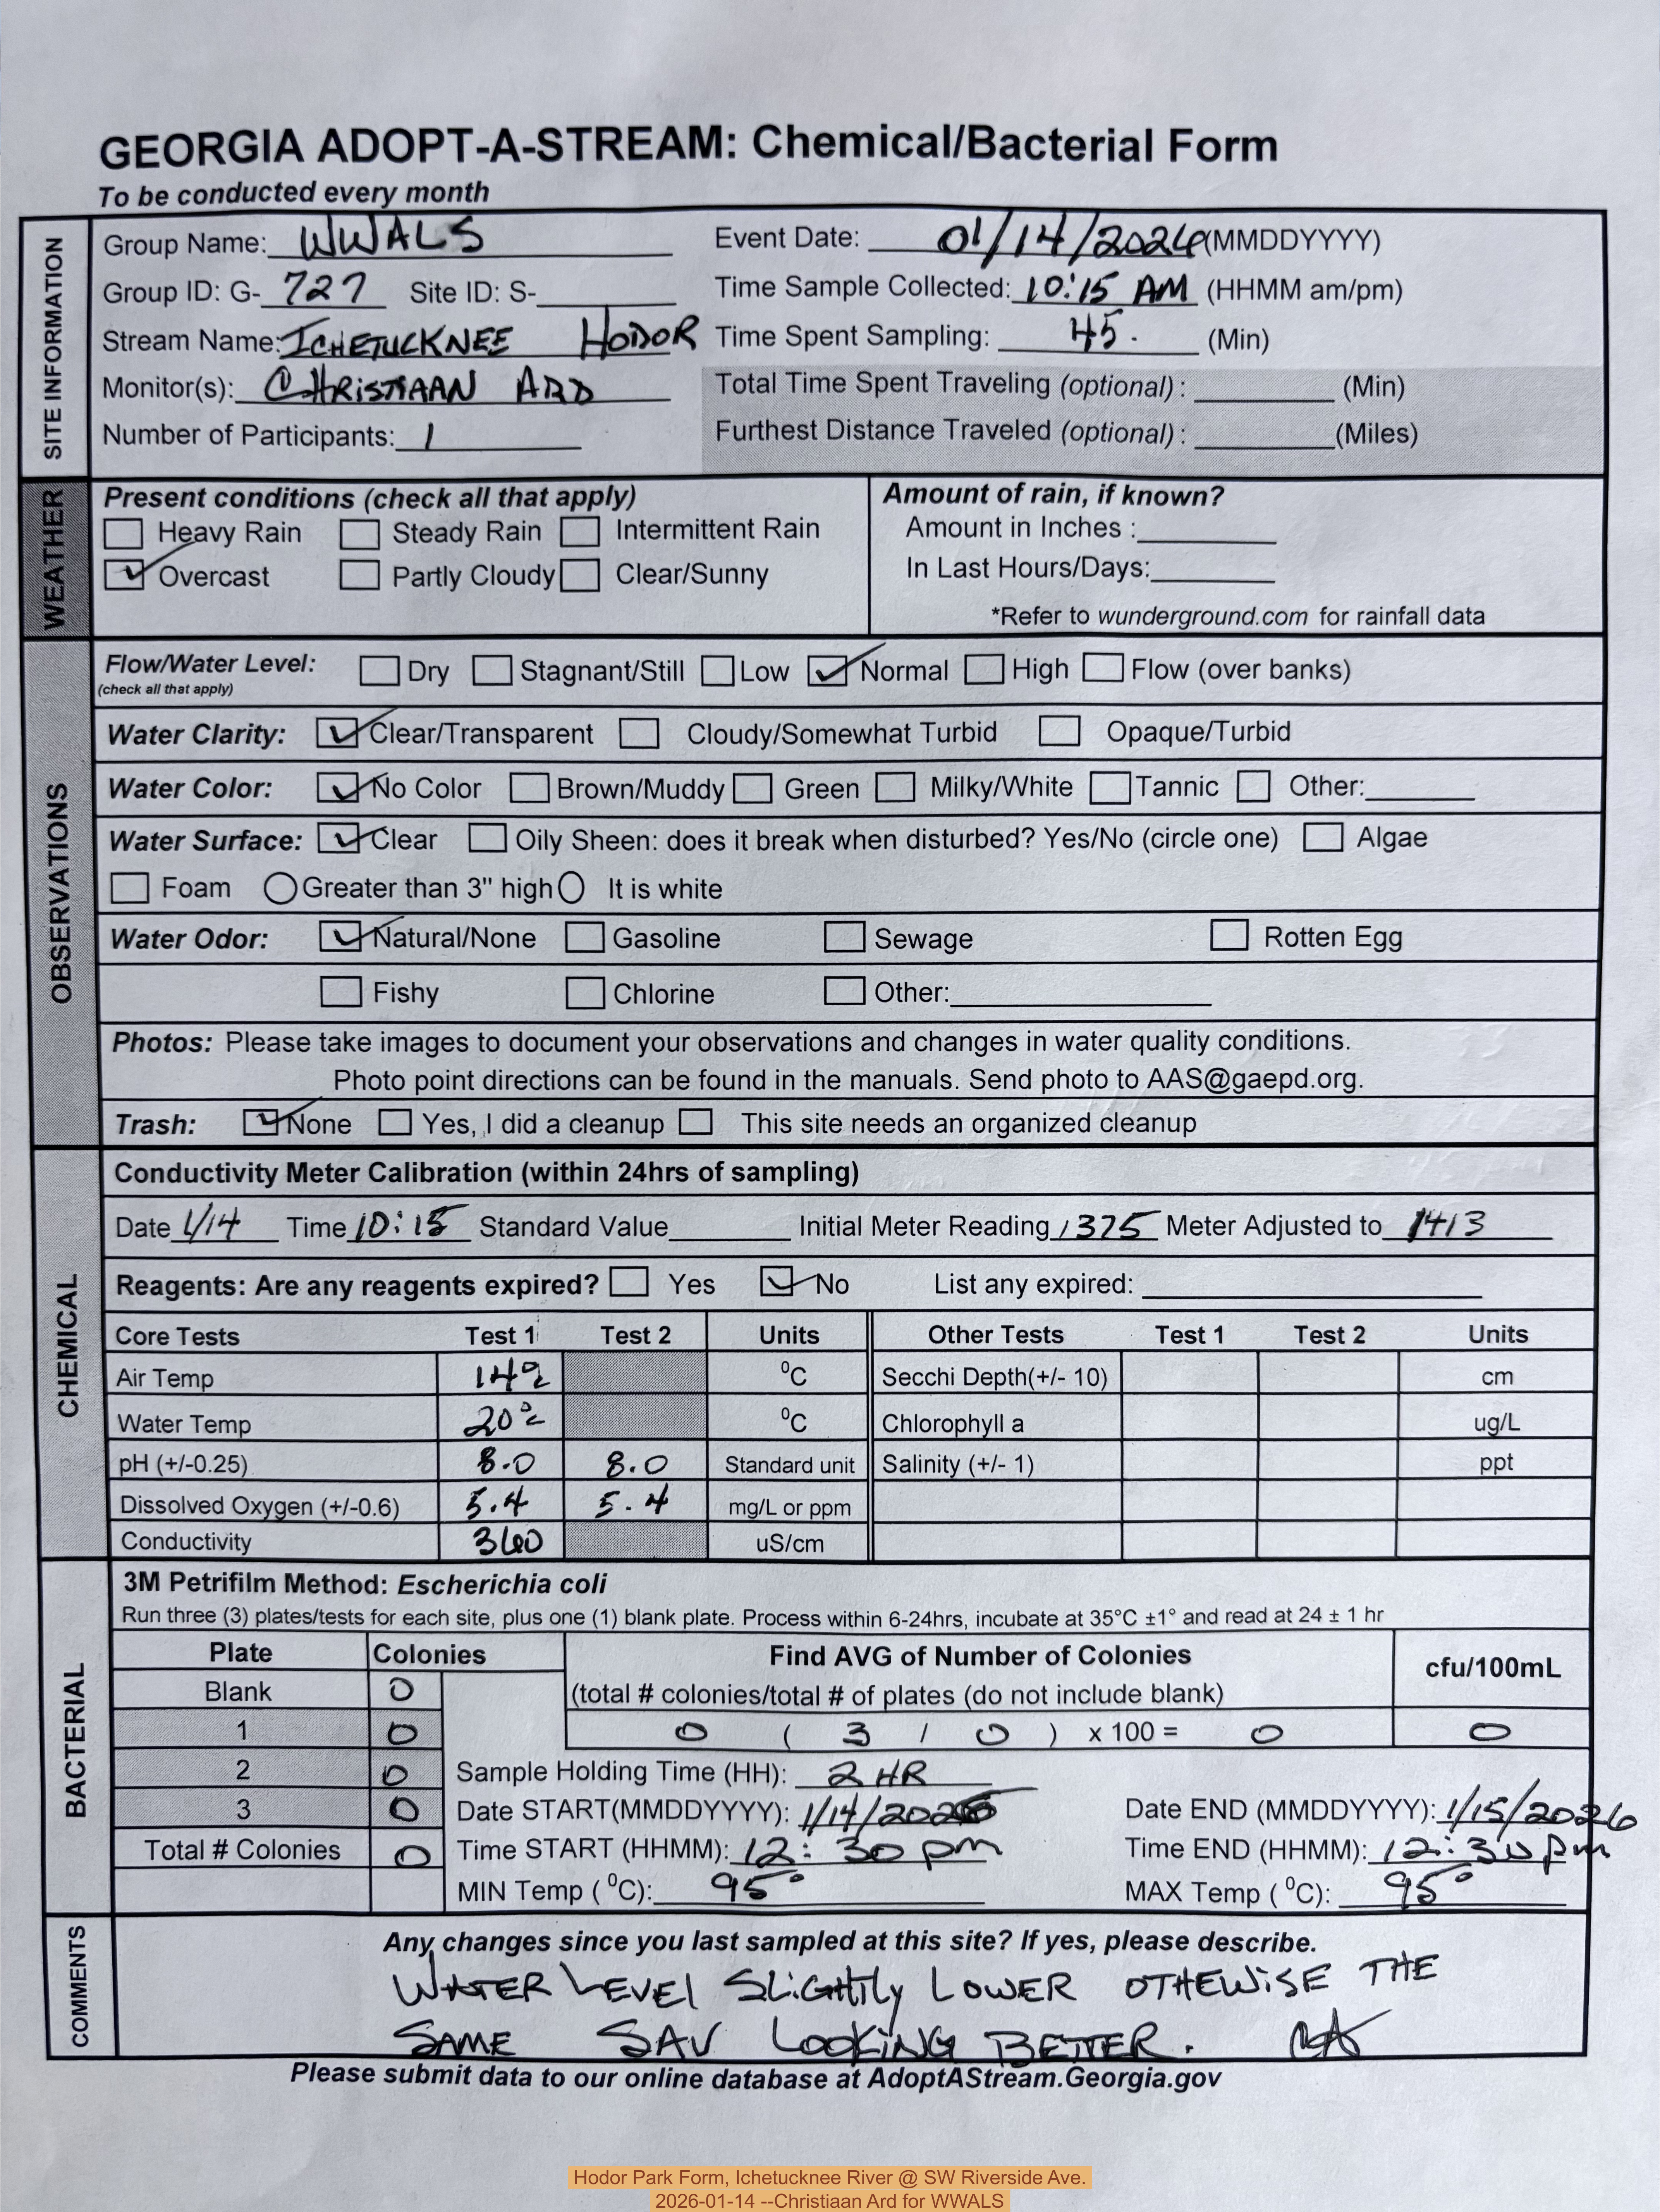 GEORGIA ADOPT-A-STREAM: Chemical/Bacterial Form
To be conducted every month
SITE INFORMATION
Group Name: WWALS
Event Date: 01/14/2026 (MMDDYYYY)
Group ID: G- 727 Site ID: S-
Time Sample Collected: 10:15 AM (HHMM am/pm)
Stream Name: ICHETUCKNEE HODOR
Time Spent Sampling: 45. (Min)
Monitor(s): CHRISTIAAN ARD
Total Time Spent Traveling (optional) : (Min)
Number of Participants: 1
Furthest Distance Traveled (optional) : (Miles)
WEATHER
Present conditions (check all that apply)
Heavy Rain Steady Rain Intermittent Rain
Overcast Partly Cloudy Clear/Sunny
Amount of rain, if known?
Amount in Inches :
In Last Hours/Days:
*Refer to wunderground.com for rainfall data
OBSERVATIONS
Flow/Water Level: Dry Stagnant/Still Low Normal High Flow (over banks)
(check all that apply)
Water Clarity: Clear/Transparent Cloudy/Somewhat Turbid Opaque/Turbid
Water Color: No Color Brown/Muddy Green Milky/White Tannic Other:
Water Surface: Clear Oily Sheen: does it break when disturbed? Yes/No (circle one) Algae
Foam Greater than 3" high It is white
Water Odor: Natural/None Gasoline Sewage Rotten Egg
Fishy Chlorine Other:
Photos: Please take images to document your observations and changes in water quality conditions.
Photo point directions can be found in the manuals. Send photo to AAS@gaepd.org.
Trash: None Yes, I did a cleanup This site needs an organized cleanup
CHEMICAL
Conductivity Meter Calibration (within 24hrs of sampling)
Date 1/14 Time 10:15 Standard Value Initial Meter Reading 1375 Meter Adjusted to 1413
Reagents: Are any reagents expired? Yes No List any expired:
Core Tests Test 1 Test 2 Units Other Tests Test 1 Test 2 Units
Air Temp 14° °C Secchi Depth(+/- 10) cm
Water Temp 20° °C Chlorophyll a ug/L
pH (+/-0.25) 8.0 8.0 Standard unit Salinity (+/- 1) ppt
Dissolved Oxygen (+/-0.6) 5.4 5.4 mg/L or ppm
Conductivity 360 uS/cm
BACTERIAL
3M Petrifilm Method: Escherichia coli
Run three (3) plates/tests for each site, plus one (1) blank plate. Process within 6-24hrs, incubate at 35°C ±1° and read at 24 ± 1 hr
Plate Colonies Find AVG of Number of Colonies cfu/100mL
Blank 0 (total # colonies/total # of plates (do not include blank)
1 0 0 ( 3 / 0 ) x 100 = 0 0
2 0 Sample Holding Time (HH): 2 HR
3 0 Date START(MMDDYYYY): 1/14/2026 Date END (MMDDYYYY): 1/15/2026
Total # Colonies 0 Time START (HHMM): 12:30 pm Time END (HHMM): 12:30 pm
MIN Temp (°C): 95° MAX Temp (°C): 95°
COMMENTS
Any changes since you last sampled at this site? If yes, please describe.
WATER LEVEL SLIGHTLY LOWER OTHEWISE THE
SAME SAV LOOKING BETTER. CA
Please submit data to our online database at AdoptAStream.Georgia.gov
Hodor Park Form, Ichetucknee River @ SW Riverside Ave.
2026-01-14 --Christiaan Ard for WWALS